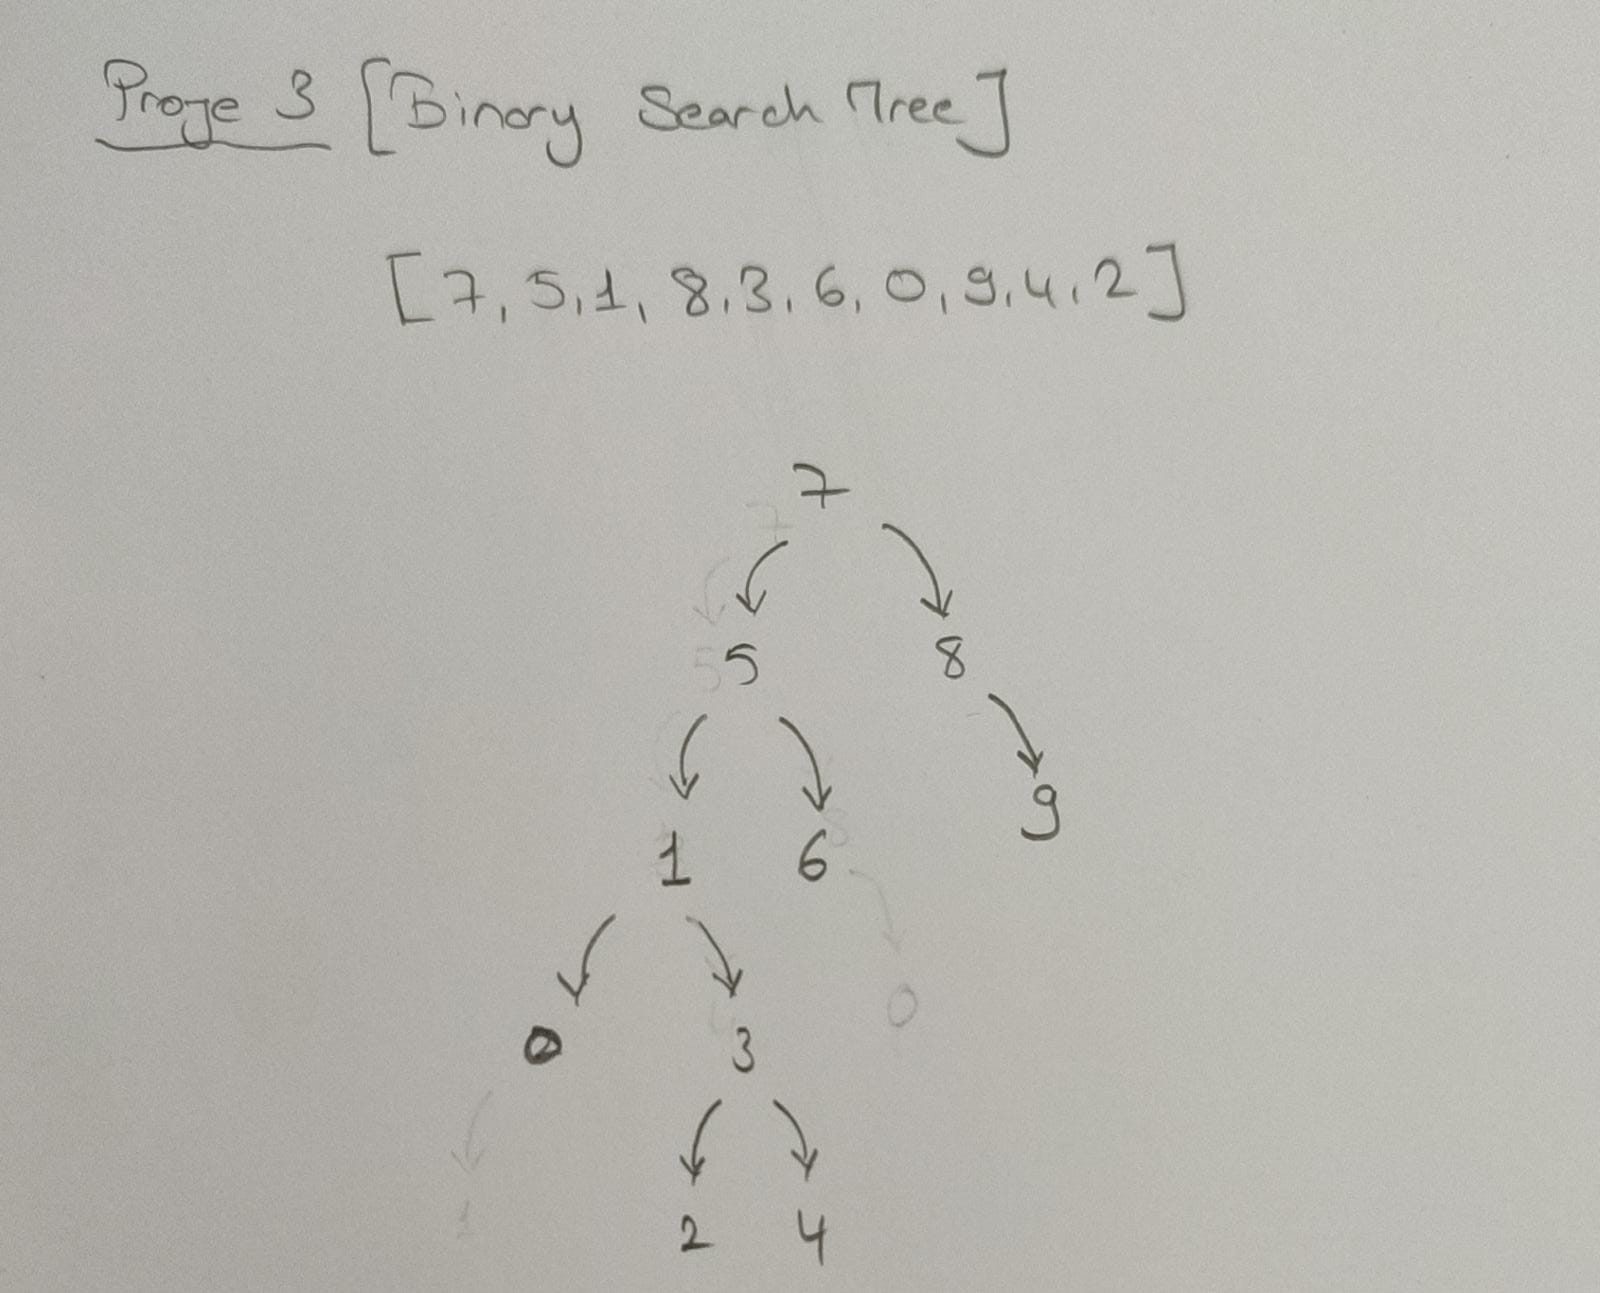 Proje 3 [Binary Search Tree]
[7, 5, 1, 8, 3, 6, 0, 9, 4, 2]
7
5 8
1 6 9
0 3
2 4